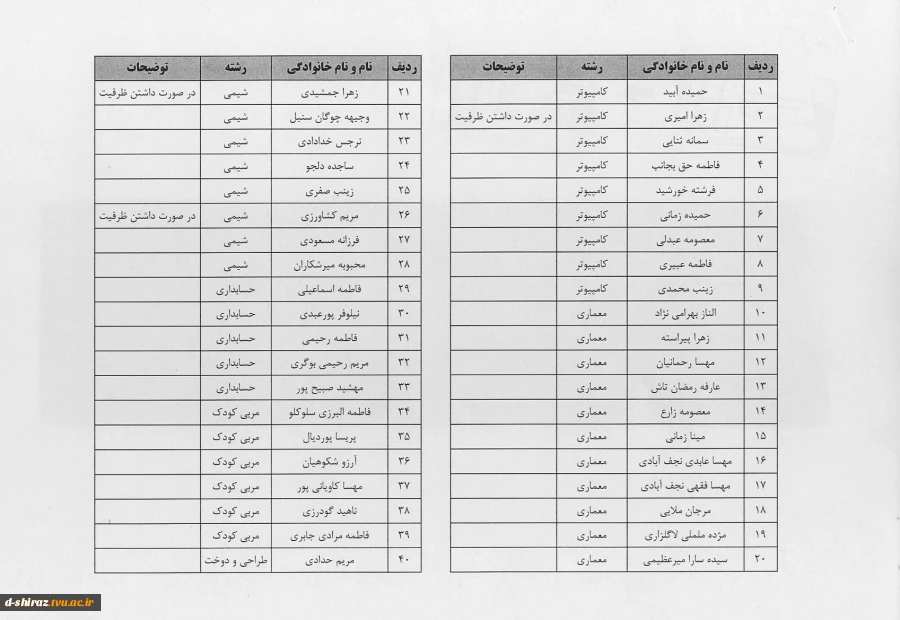 ردیف نام و نام خانوادگی رشته توضیحات
۱ حمیده آیید کامپیوتر
۲ زهرا امیری کامپیوتر در صورت داشتن ظرفیت
۳ سمانه ثنایی کامپیوتر
۴ فاطمه حق بجانب کامپیوتر
۵ فرشته خورشید کامپیوتر
۶ حمیده زمانی کامپیوتر
۷ معصومه عبدلی کامپیوتر
۸ فاطمه عبیری کامپیوتر
۹ زینب محمدی کامپیوتر
۱۰ الناز بهرامی نژاد معماری
۱۱ زهرا پیراسته معماری
۱۲ مهسا رحمانیان معماری
۱۳ عارفه رمضان تاش معماری
۱۴ معصومه زارع معماری
۱۵ مینا زمانی معماری
۱۶ مهسا عابدی نجف آبادی معماری
۱۷ مهسا فقهی نجف آبادی معماری
۱۸ مرجان ملایی معماری
۱۹ مژده ململی لاگلزاری معماری
۲۰ سیده سارا میرعظیمی معماری
ردیف نام و نام خانوادگی رشته توضیحات
۲۱ زهرا جمشیدی شیمی در صورت داشتن ظرفیت
۲۲ وجیهه چوگان سنبل شیمی
۲۳ نرجس خدادادی شیمی
۲۴ ساجده دلجو شیمی
۲۵ زینب صفری شیمی
۲۶ مریم کشاورزی شیمی در صورت داشتن ظرفیت
۲۷ فرزانه مسعودی شیمی
۲۸ محبوبه میرشکاران شیمی
۲۹ فاطمه اسماعیلی حسابداری
۳۰ نیلوفر پورعبدی حسابداری
۳۱ فاطمه رحیمی حسابداری
۳۲ مریم رحیمی بوگری حسابداری
۳۳ مهشید صبیح پور حسابداری
۳۴ فاطمه البرزی سلوکلو مربی کودک
۳۵ پریسا پوردیال مربی کودک
۳۶ آرزو شکوهیان مربی کودک
۳۷ مهسا کاویانی پور مربی کودک
۳۸ ناهید گودرزی مربی کودک
۳۹ فاطمه مرادی جابری مربی کودک
۴۰ مریم حدادی طراحی و دوخت
d-shiraz.tvu.ac.ir